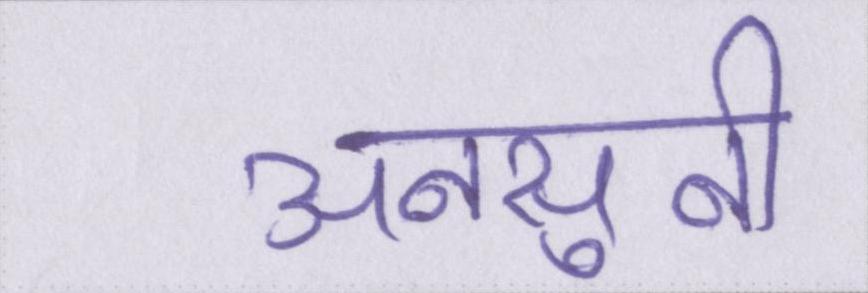 अनसुनी